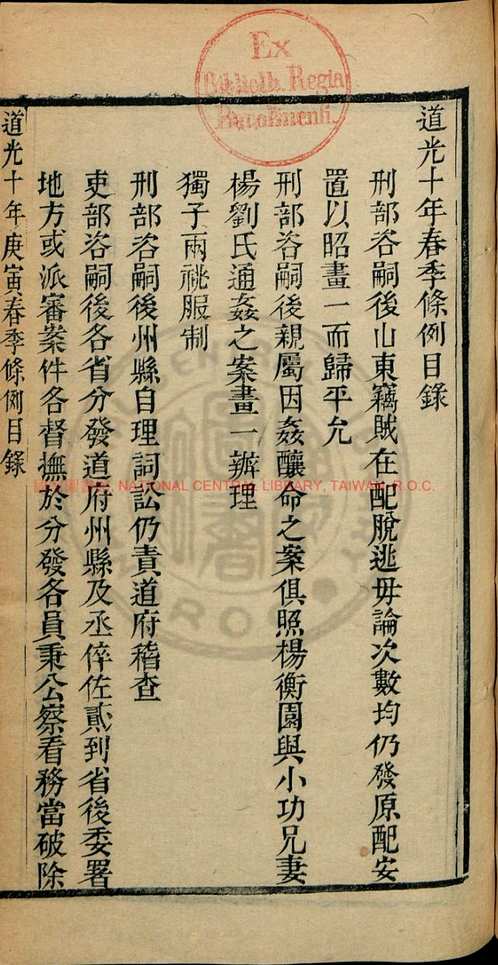 道光十年春季條例目錄
刑部咨嗣後山東竊賊在配脫逃毋論次數均仍發原配安
置以昭畫一而歸平允
刑部咨嗣後親屬因姦釀命之案俱照楊衡園與小功兄妻
楊劉氏通姦之案畫一辦理
獨子兩祧服制
刑部咨嗣後州縣自理詞訟仍責道府稽查
吏部咨嗣後各省分發道府州縣及丞倅佐貳到省後委署
地方或派審案件各督撫於分發各員秉公察看務當破除
道光十年庚寅春季條例目錄
Ex
Biblioth. Regia
Berolinensi.
NATIONAL CENTRAL LIBRARY, TAIWAN, R.O.C.